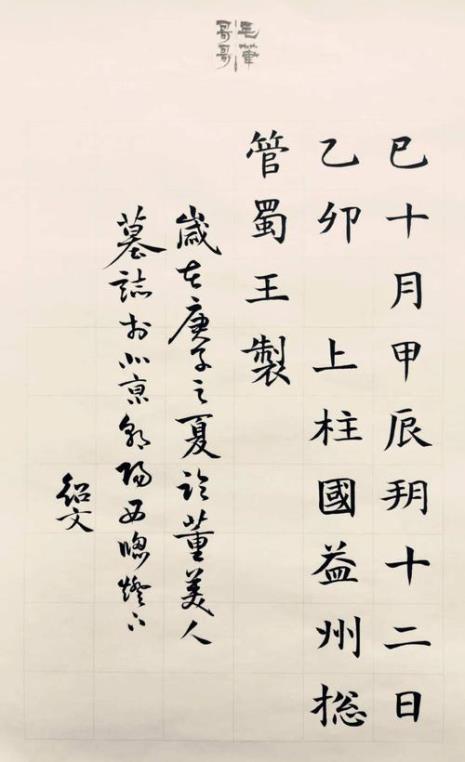 毛筆
哥哥
巳十月甲辰朔十二日
乙卯 上柱國益州揔
管蜀王製
歲在庚子之夏臨董美人
墓誌於北京朝陽西牕燈下
紹文